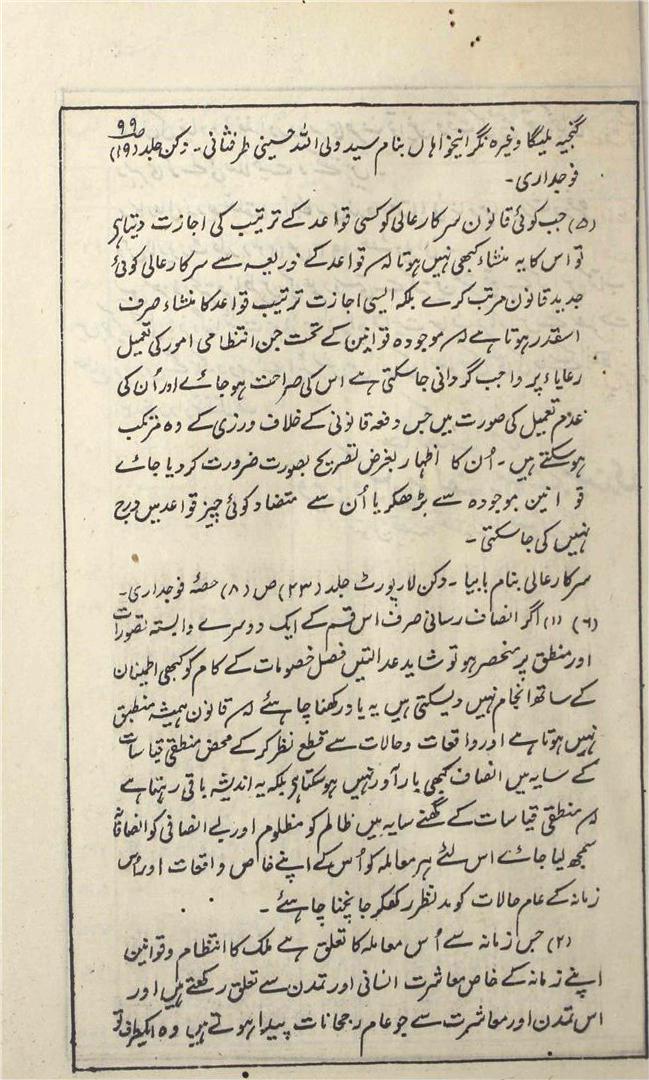 گنجیہ بلیگا وغیرہ نگرانیخواہاں بنام سید ولی اللہ حسینی طرفثانی۔ دکن جلد (۱۹) ص۹۹
فوجداری۔
(۵) جب کوئی قانون سرکارعالی کو کسی قواعد کے ترتیب کی اجازت دیتا ہی
تو اس کا یہ منشاء کبھی نہیں ہوتا کہ قواعد کے ذریعہ سے سرکارعالی کوئی
جدید قانون مرتب کرے بلکہ ایسی اجازت ترتیب قواعد کا منشاء صرف
اسقدر ہوتا ہے کہ موجودہ قوانین کے تحت جن انتظامی امور کی تعمیل
رعایاء پر واجب گردانی جاسکتی ہے اس کی صراحت ہوجائے اور اُن کی
عدم تعمیل کی صورت میں جس دفعہ قانونی کے خلاف ورزی کے وہ مرتکب
ہوسکتے ہیں۔ اُن کا اظہار بغرض تصریح بصورت ضرورت کردیا جائے
قوانین موجودہ سے بڑھکر یا اُن سے متضاد کوئی چیز قواعد میں درج
نہیں کی جاسکتی۔
سرکارعالی بنام بابیا۔ دکن لارپورٹ جلد (۲۳) ص (۸) حصۂ فوجداری۔
(۶) (۱) اگر انصاف رسانی صرف اس قسم کے ایک دوسرے وابستہ تصورات
اور منطق پر منحصر ہو تو شاید عدالتیں فصل خصومات کے کام کو کبھی اطمینان
کے ساتھ انجام نہیں دیسکتی ہیں یہ یاد رکھنا چاہئے کہ قانون ہمیشہ منطبق
نہیں ہوتا ہے اور واقعات وحالات سے قطع نظر کرکے محض منطقی قیاسات
کے سایہ میں انصاف کبھی بارآور نہیں ہوسکتا ہی بلکہ یہ اندیشہ باقی رہتا ہے
کہ منطقی قیاسات کے گھنے سایہ میں ظالم کو مظلوم اور بے انصافی کو انصاف
سمجھ لیا جائے اس لئے ہر معاملہ کو اُس کے اپنے خاص واقعات اور اُس
زمانہ کے عام حالات کو مدنظر رکھکر جانچنا چاہئے۔
(۲) جس زمانہ سے اُس معاملہ کا تعلق ہے ملک کا انتظام وقوانین
اپنے زمانہ کے خاص معاشرت انسانی اور تمدن سے تعلق رکھتے ہیں اور
اس تمدن اور معاشرت سے جو عام رجحانات پیدا ہوتے ہیں وہ ایکطرف تو